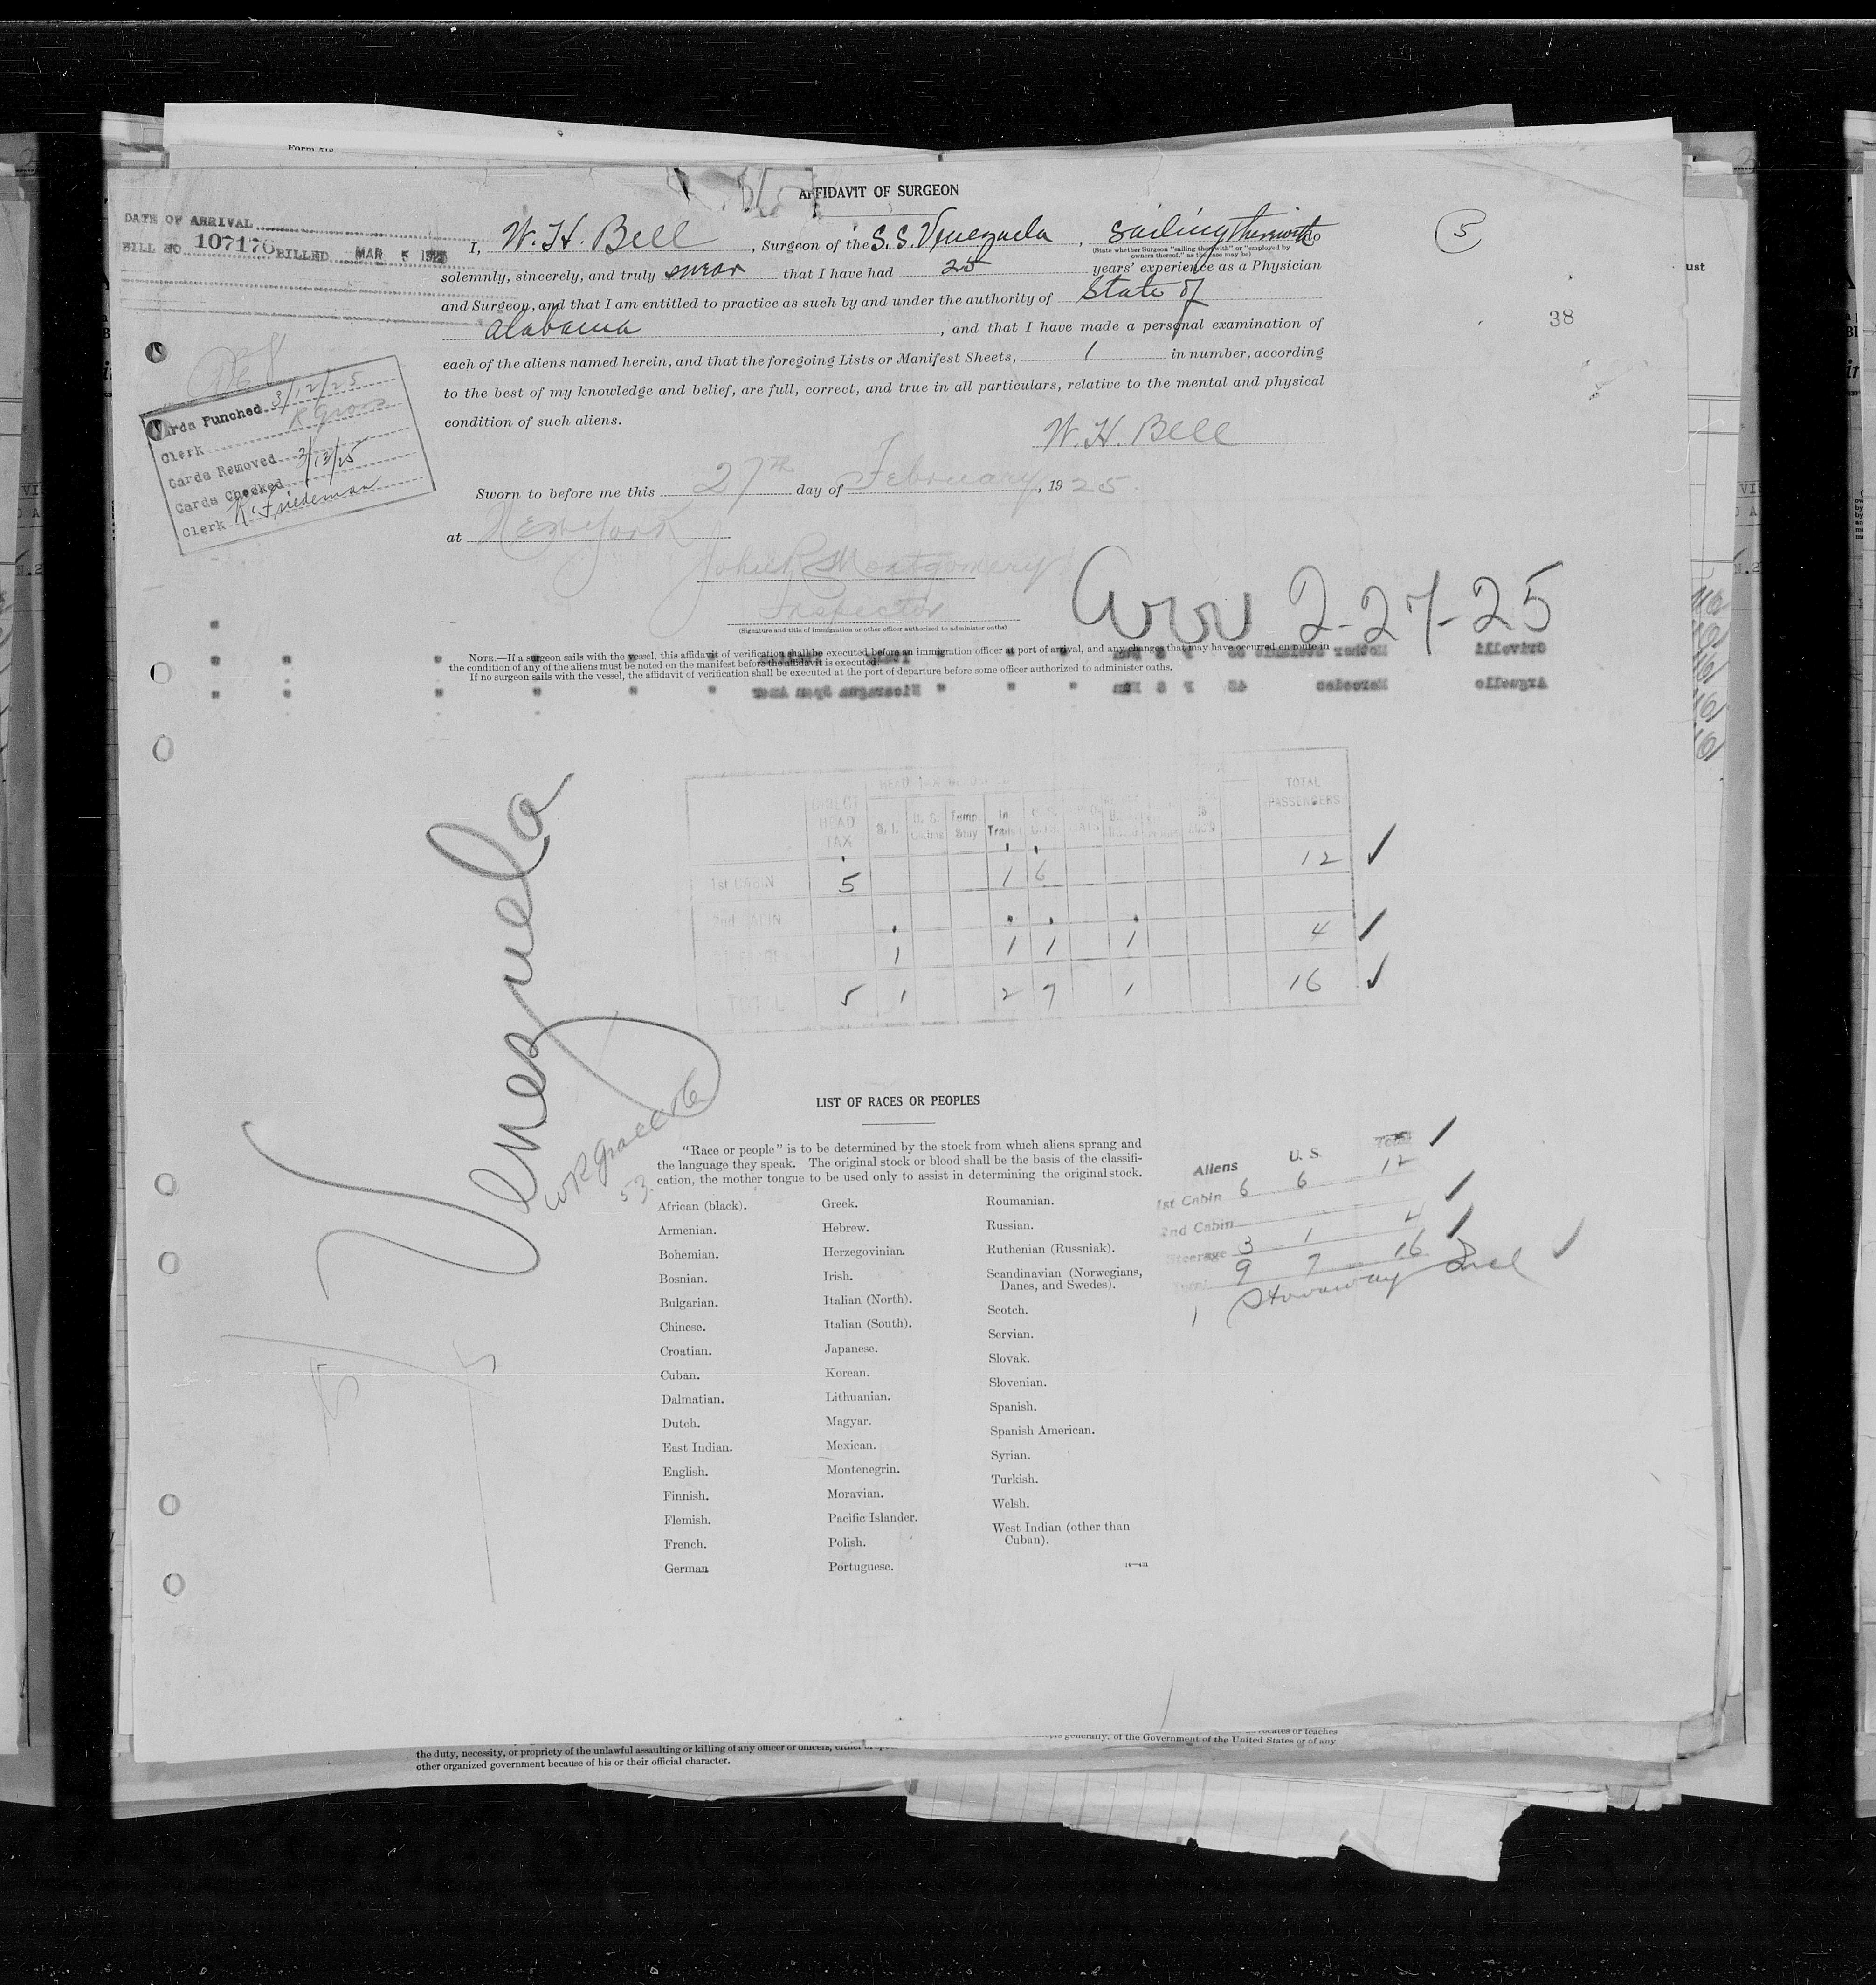 Form 518
AFFIDAVIT OF SURGEON
DATE OF ARRIVAL
BILL NO 107176 BILLED MAR 5 1925
5
38
I, W. H. Bell, Surgeon of the S. S. Venezuela, Sailing therewith do
(State whether Surgeon "sailing therewith" or "employed by
owners thereof," as the case may be)
solemnly, sincerely, and truly swear that I have had 25 years' experience as a Physician
and Surgeon, and that I am entitled to practice as such by and under the authority of State of
Alabama, and that I have made a personal examination of
each of the aliens named herein, and that the foregoing Lists or Manifest Sheets, 1 in number, according
to the best of my knowledge and belief, are full, correct, and true in all particulars, relative to the mental and physical
condition of such aliens.
W. H. Bell
Cards Punched 3/12/25
Clerk R Gross
Cards Removed
Cards Checked 3/13/25
Clerk R. Friedeman
Sworn to before me this 27th day of February, 1925.
at New York
John R Montgomery
Inspector
(Signature and title of immigration or other officer authorized to administer oaths)
Arr 2-27-25
NOTE.—If a surgeon sails with the vessel, this affidavit of verification shall be executed before an immigration officer at port of arrival, and any changes that may have occurred en route in
the condition of any of the aliens must be noted on the manifest before the affidavit is executed.
If no surgeon sails with the vessel, the affidavit of verification shall be executed at the port of departure before some officer authorized to administer oaths.
DIRECT HEAD TAX S. I. Temp Stay In Transit TOTAL PASSENGERS
1st CABIN 5 1 6 12
2nd CABIN
1 1 1 1 4
TOTAL 5 1 2 7 1 16
Venezuela
W R Grace & Co
53.
LIST OF RACES OR PEOPLES
"Race or people" is to be determined by the stock from which aliens sprang and
the language they speak. The original stock or blood shall be the basis of the classifi-
cation, the mother tongue to be used only to assist in determining the original stock.
African (black).
Armenian.
Bohemian.
Bosnian.
Bulgarian.
Chinese.
Croatian.
Cuban.
Dalmatian.
Dutch.
East Indian.
English.
Finnish.
Flemish.
French.
German
Greek.
Hebrew.
Herzegovinian.
Irish.
Italian (North).
Italian (South).
Japanese.
Korean.
Lithuanian.
Magyar.
Mexican.
Montenegrin.
Moravian.
Pacific Islander.
Polish.
Portuguese.
Roumanian.
Russian.
Ruthenian (Russniak).
Scandinavian (Norwegians,
Danes, and Swedes).
Scotch.
Servian.
Slovak.
Slovenian.
Spanish.
Spanish American.
Syrian.
Turkish.
Welsh.
West Indian (other than
Cuban).
14—431
Aliens U. S. Total
1st Cabin 6 6 12
2nd Cabin
Steerage 3 1 4
Total 9 7 16
1 Stowaway Incl
the duty, necessity, or propriety of the unlawful assaulting or killing of any officer or officers,
other organized government because of his or their official character.
generally, of the Government of the United States or of any